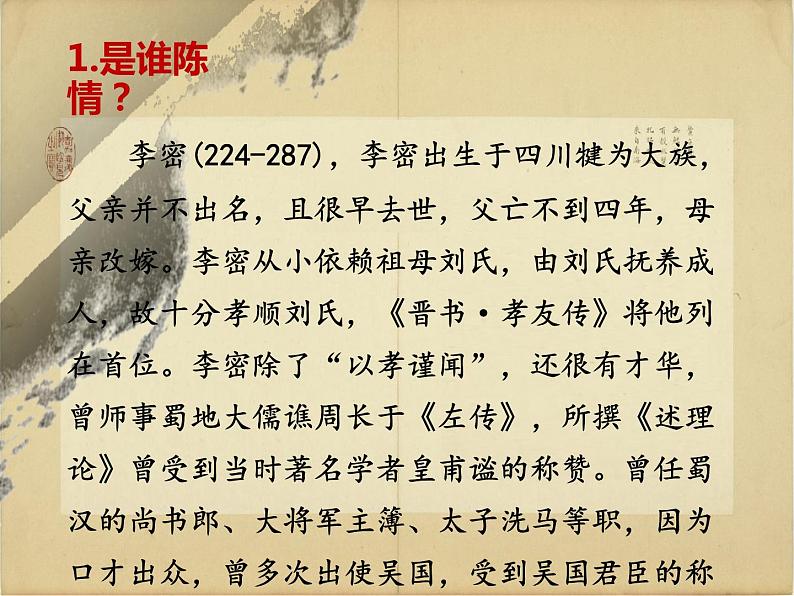 1.是谁陈
情？
李密(224-287)，李密出生于四川犍为大族，
父亲并不出名，且很早去世，父亡不到四年，母
亲改嫁。李密从小依赖祖母刘氏，由刘氏抚养成
人，故十分孝顺刘氏，《晋书·孝友传》将他列
在首位。李密除了“以孝谨闻”，还很有才华，
曾师事蜀地大儒谯周长于《左传》，所撰《述理
论》曾受到当时著名学者皇甫谧的称赞。曾任蜀
汉的尚书郎、大将军主簿、太子洗马等职，因为
口才出众，曾多次出使吴国，受到吴国君臣的称